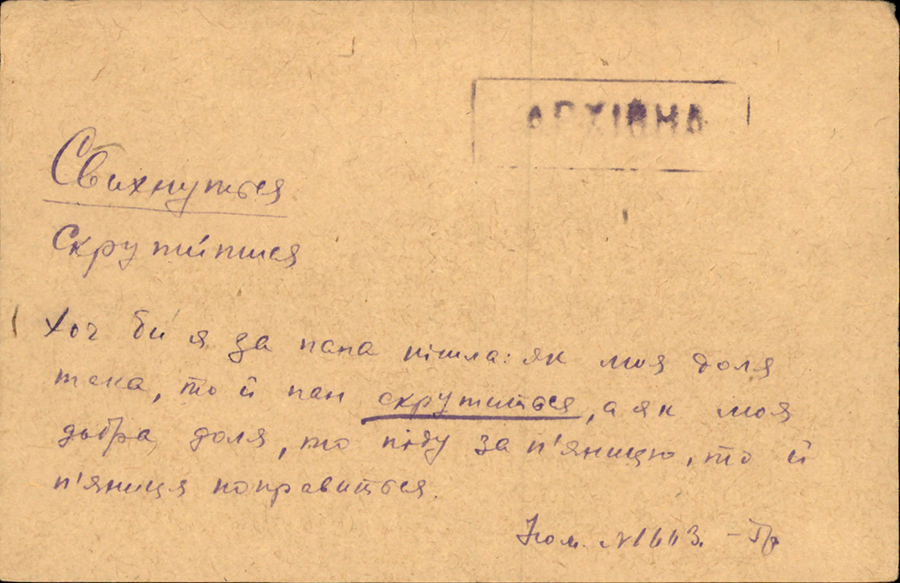 АРХІВНА
Свихнуться
Скрутитися
Хоч би я за пана пішла: як моя доля
така, то й пан скрутиться, а як моя
добра доля, то піду за п'яницю, то й
п'яниця поправиться.
Ном. №1613. – Гр